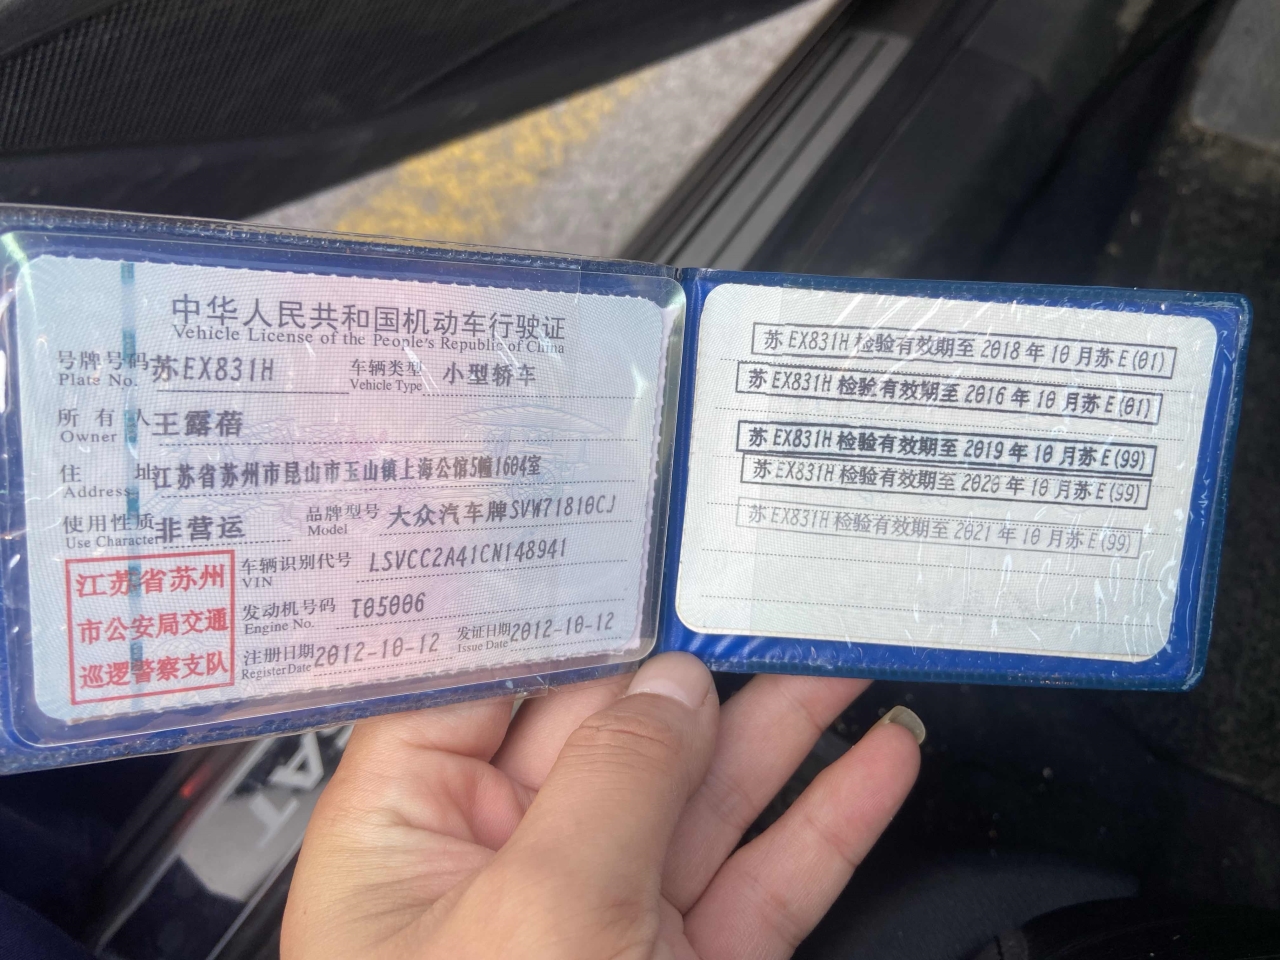 中华人民共和国机动车行驶证
Vehicle License of the People's Republic of China
号牌号码 苏EX831H 车辆类型 小型轿车
Plate No. Vehicle Type
所有人 王露蓓
Owner
住址 江苏省苏州市昆山市玉山镇上海公馆5幢1604室
Address
使用性质 非营运 品牌型号 大众汽车牌SVW71810CJ
Use Character Model
车辆识别代号 LSVCC2A41CN148941
VIN
发动机号码 T05006
Engine No.
注册日期 2012-10-12 发证日期 2012-10-12
Register Date Issue Date
江苏省苏州
市公安局交通
巡逻警察支队
苏EX831H检验有效期至2018年10月苏E(01)
苏EX831H检验有效期至2016年10月苏E(01)
苏EX831H检验有效期至2019年10月苏E(99)
苏EX831H检验有效期至2020年10月苏E(99)
苏EX831H检验有效期至2021年10月苏E(99)